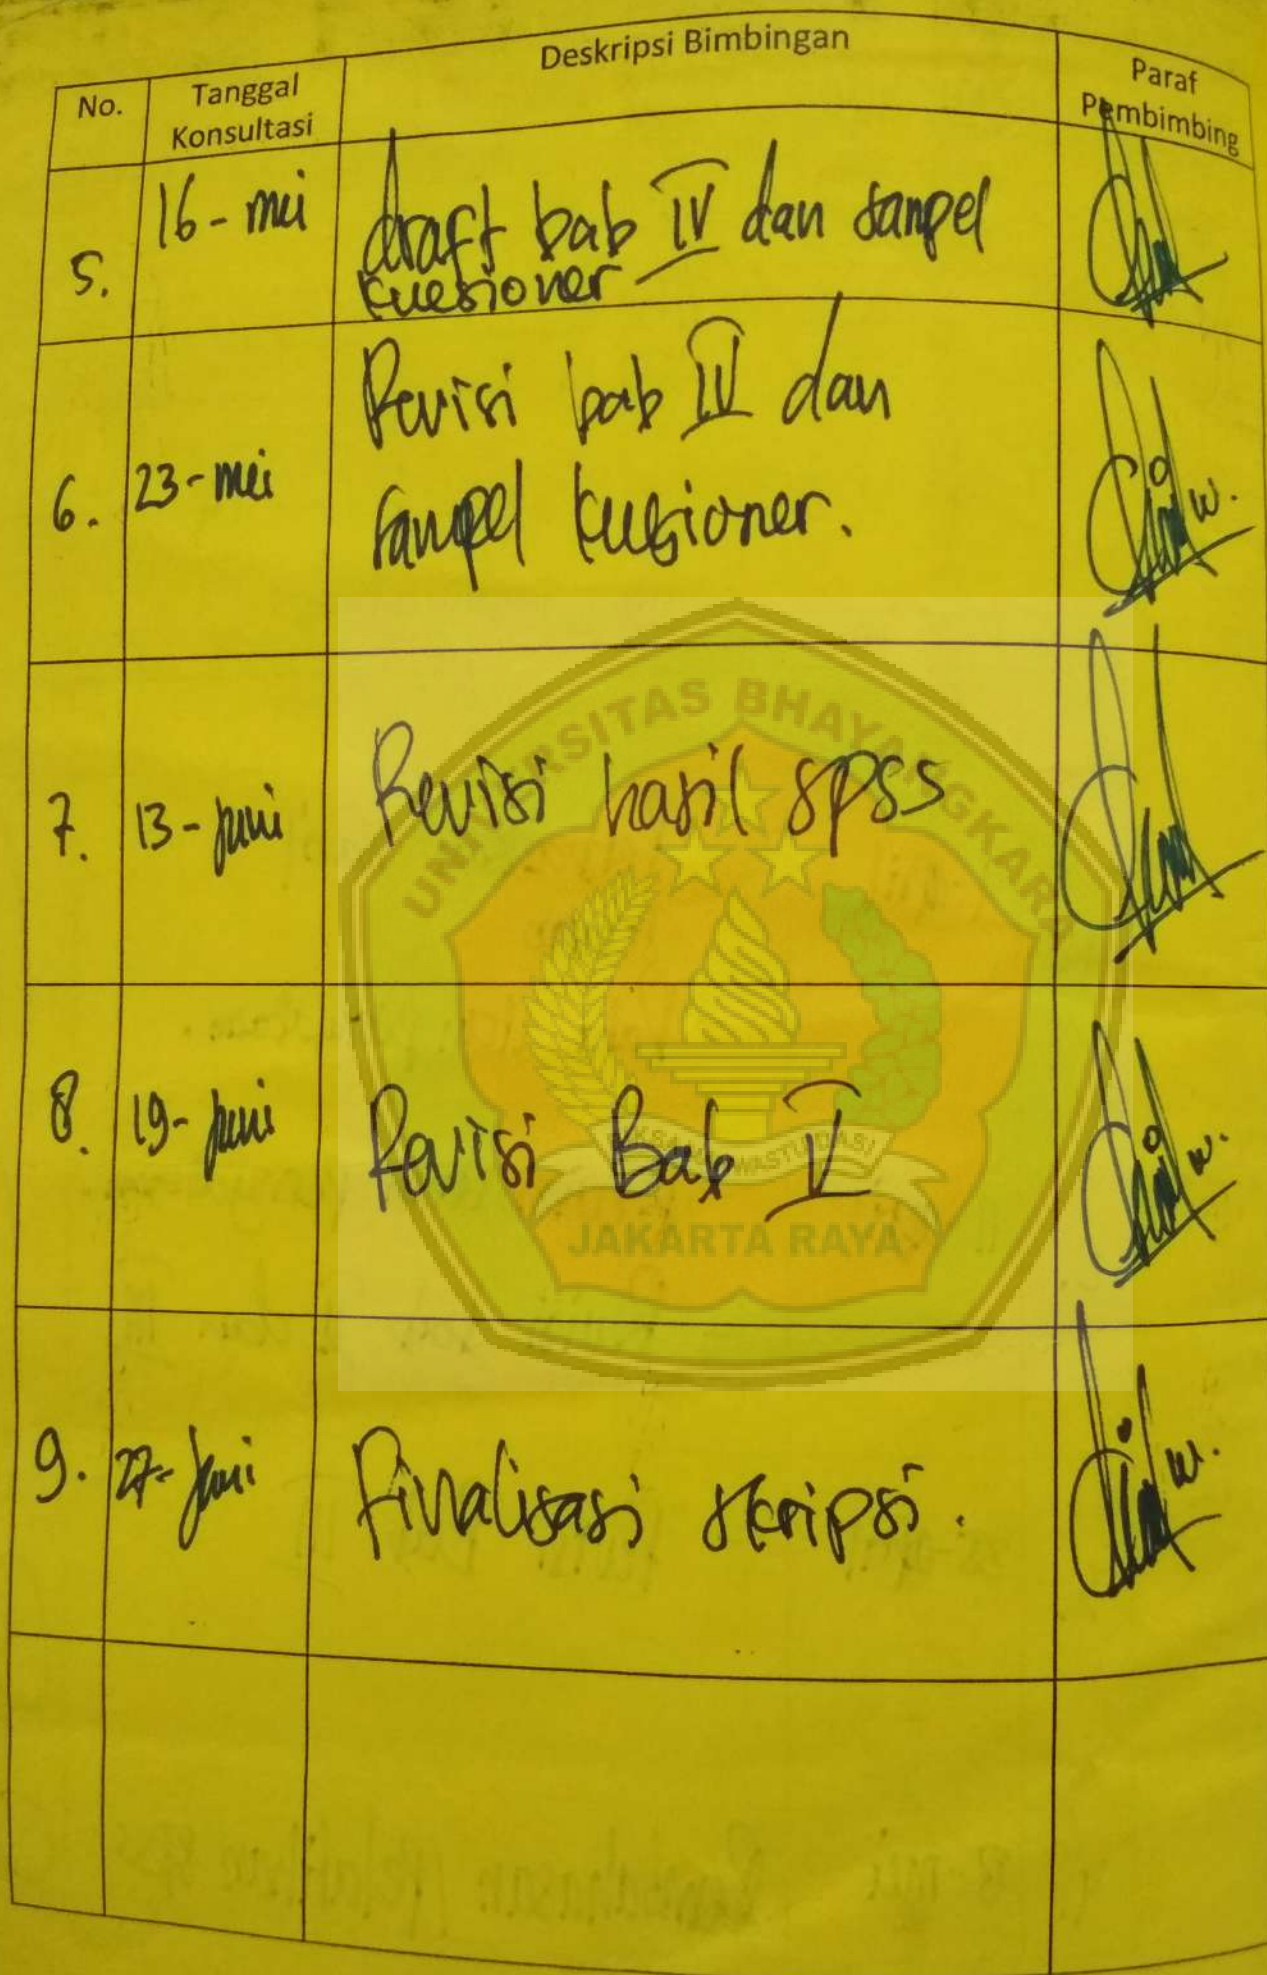 No. Tanggal Konsultasi Deskripsi Bimbingan Paraf Pembimbing
5. 16-mei draft bab IV dan sampel
kuesioner
6. 23-mei Revisi bab IV dan
sampel kuesioner.
7. 13-juni Revisi hasil SPSS
8. 19-juni Revisi Bab V
9. 27-juni Finalisasi skripsi.
UNIVERSITAS BHAYANGKARA
JAKARTA RAYA